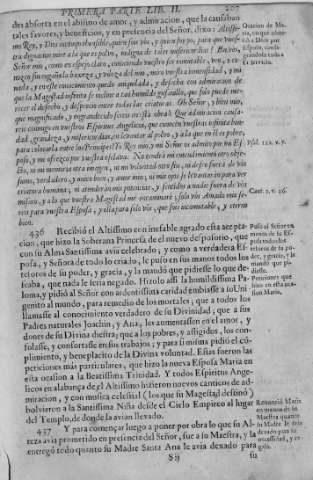 PRIMERA PARTE LIB. II. 207
des absorta en el abismo de amor, y admiracion, que la causaban
tales favores, y beneficios, y en presencia del Señor, dixo: Altissi-
mo Rey, y Dios incomprehensible, quien sois vos, y quien soy yo, para que vues-
tra dignacion mire a la que es polvo, indigna de tales misericordias?
Señor mio, como en espejo claro, conociendo vuestro ser inmutable, veo, y co-
nozco sin engaño la baxeza, y vileza del mio, miro vuestra inmensidad, y mi
nada, y en este conocimiento quedo aniquilada, y deshecha con admiracion de
que la Magestad infinita se incline a tan humilde gusanillo, que solo puede me-
recer el desecho, y desprecio entre todas las criaturas. Oh Señor, y bien mio,
que magnificado, y engrandecido sereis en esta obra! Que admiracion causa-
reis conmigo en vuestros Espiritus Angelicos, que conocen vuestra infinita bon-
dad, grandeza, y misericordias, en levantar al polvo, y a la que en el es pobre,
para colocarla entre los Principes! Yo Rey mio, y mi Señor os admito por mi Es-
poso, y me ofrezco por vuestra esclava. No tendrá mi entendimiento otro obje-
to, ni mi memoria otra imagen, ni mi voluntad otro fin, ni deseo fuera de vos
sumo, verdadero, y unico bien, y amor mio, ni mis ojos se levantaran para ver
criatura humana, ni atenderan mis potencias, y sentidos a nadie fuera de vos
mismo, y a lo que vuestra Magestad me encaminare; solo vos Amado mio se-
reis para vuestra Esposa, y ella para solo vos, que sois incomutable, y eterno
bien.
Oracion de Ma-
ria, en que
Psal. 112. v. 7.
Cant. 2. v. 16.
436 Recibió el Altissimo con inefable agrado esta acepta-
cion, que hizo la Soberana Princesa de el nuevo desposorio, que
con su Alma Santissima avia celebrado; y como a verdadera Es-
posa, y Señora de todo lo criado, le puso en sus manos todos los
tesoros de su poder, y gracia, y la mandó que pidiesse lo que de-
seaba, que nada le seria negado. Hizolo assi la humildissima Pa-
loma, y pidió al Señor con ardentissima caridad embiasse a su Uni-
genito al mundo, para remedio de los mortales; que a todos los
llamasse al conocimiento verdadero de su Divinidad; que a sus
Padres naturales Joachin, y Ana, les aumentasse en el amor, y
dones de su Divina diestra; que a los pobres, y afligidos, los con-
solasse, y confortasse en sus trabajos; y para si misma pidió el cum-
plimiento, y beneplacito de la Divina voluntad. Estas fueron las
peticiones mas particulares, que hizo la nueva Esposa Maria en
esta ocasion a la Beatissima Trinidad. Y todos los Espiritus Ange-
licos en alabança de el Altissimo hizieron nuevos canticos de ad-
miracion, y con musica celestial (los que su Magestad destinó)
bolvieron a la Santissima Niña desde el Cielo Empireo al lugar
del Templo, de donde la avian llevado.
Puso el Señor en
manos de su Es-
posa todos los
tesoros de su po-
der, y gracia, y la
mandó que pi-
diesse.
Peticiones que
hizo en esta oca-
sion Maria.
437 Y para començar luego a poner por obra lo que su Al-
teza avia prometido en presencia del Señor, fue a su Maestra, y la
entregó todo quanto su Madre Santa Ana le avia dexado para
Renunció Maria
en manos de su
Maestra quanto
su Madre le avia
dexado para su
necessidad, y re-
galo.
S ij
su